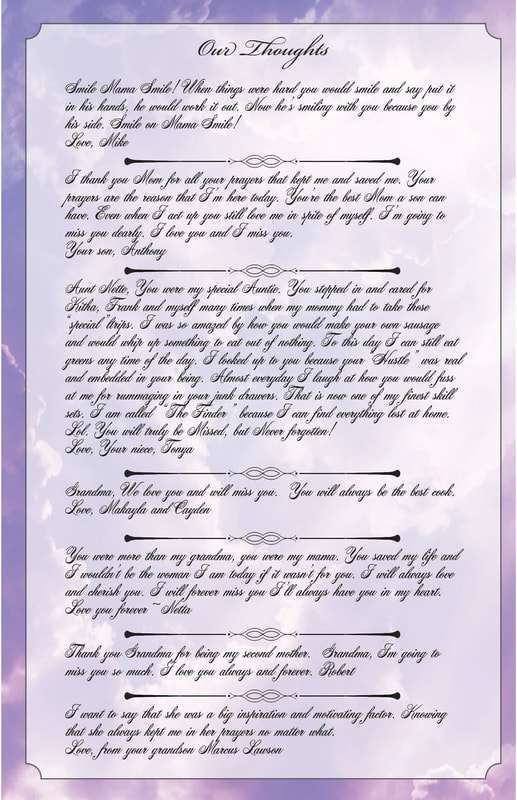 Our Thoughts
Smile Mama Smile! When things were hard you would smile and say put it
in his hands, he would work it out. Now he's smiling with you because you by
his side. Smile on Mama Smile!
Love, Mike
I thank you Mom for all your prayers that kept me and saved me. Your
prayers are the reason that I'm here today. You're the best Mom a son can
have. Even when I act up you still love me in spite of myself. I'm going to
miss you dearly. I love you and I miss you.
Your son, Anthony
Aunt Nette, You were my special Auntie. You stepped in and cared for
Kitha, Frank and myself many times when my mommy had to take those
"special"trips. I was so amazed by how you would make your own sausage
and would whip up something to eat out of nothing. To this day I can still eat
greens any time of the day. I looked up to you because your "Hustle" was real
and embedded in your being. Almost everyday I laugh at how you would fuss
at me for rummaging in your junk drawers. That is now one of my finest skill
sets. I am called "The Finder" because I can find everything lost at home.
Lol. You will truly be Missed, but Never forgotten!
Love, Your niece, Tonya
Grandma, We love you and will miss you. You will always be the best cook.
Love, Makayla and Cayden
You were more than my grandma, you were my mama. You saved my life and
I wouldn't be the woman I am today if it wasn't for you. I will always love
and cherish you. I will forever miss you I'll always have you in my heart.
Love you forever ~Netta
Thank you Grandma for being my second mother. Grandma, Im going to
miss you so much. I love you always and forever. Robert
I want to say that she was a big inspiration and motivating factor. Knowing
that she always kept me in her prayers no matter what.
Love, from your grandson Marcus Lawson